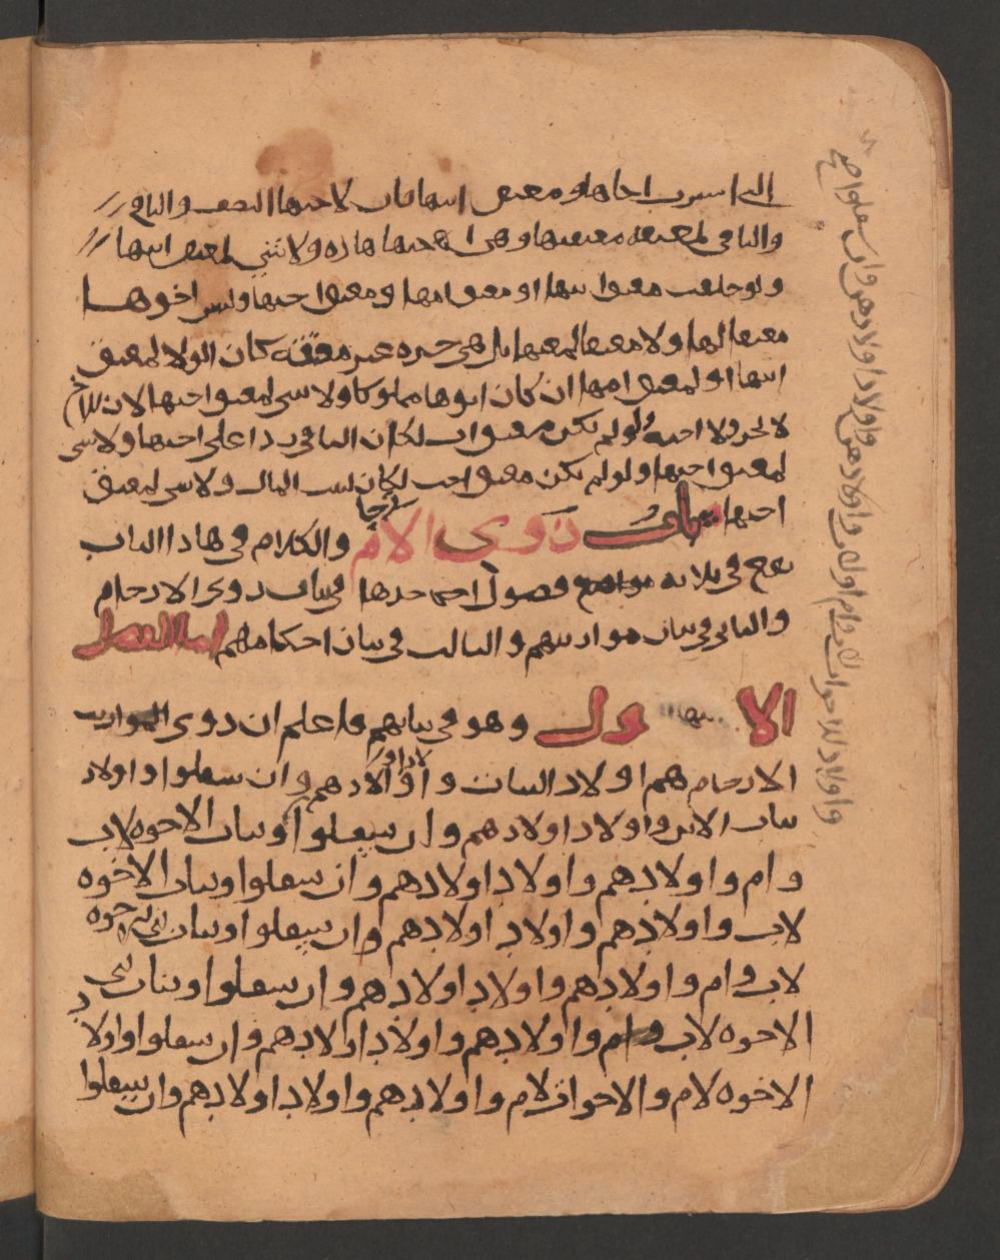 اشترت اخاها ومعتق ابنها فان لاختها النصف والباقي
والباقي لمعتقه معتقها وهي اختها هاذه ولا شي لمعتق ابنها
ولو خلفت معتق ابنها او معتق امها ومعتق اختها وليس اخوها
معتقا لها ولا معتقا لمعتقها بل هي حره غير معتقه كان الولا لمعتق
ابنها او لمعتق امها ان كان ابوها مملوكا ولا شي لمعتق اختها لان
لا يجر ولا اخته ولو لم يكن معتق اب لكان الباقي ردا على اختها ولا شي
لمعتق اختها ولو لم يكن معتق اخت لكان لبيت المال ولا شي لمعتق
اختها باب ذوي الارحام والكلام في هاذا الباب
يقع في ثلاثه مواضع فصول احدها في بيان ذوي الارحام
والثاني في بيان مواريثهم والثالث في بيان احكامهم اما الفصل
الاول وهو في بيانهم فاعلم ان ذوي المواريث
الارحام هم اولاد البنات واولاد اولادهم وان سفلوا واولاد
بنات الابن واولاد اولادهم وان سفلوا وبنات الاخوه لاب
وام واولادهم واولاد اولادهم وان سفلوا وبنات الاخوه
لاب واولادهم واولاد اولادهم وان سفلوا وبنات بني الاخوه
لاب وام واولادهم واولاد اولادهم وان سفلوا وبنات بني
الاخوه لاب وام واولادهم واولاد اولادهم وان سفلوا واولاد
الاخوه لام والاخوات لام واولادهم واولاد اولادهم وان سفلوا